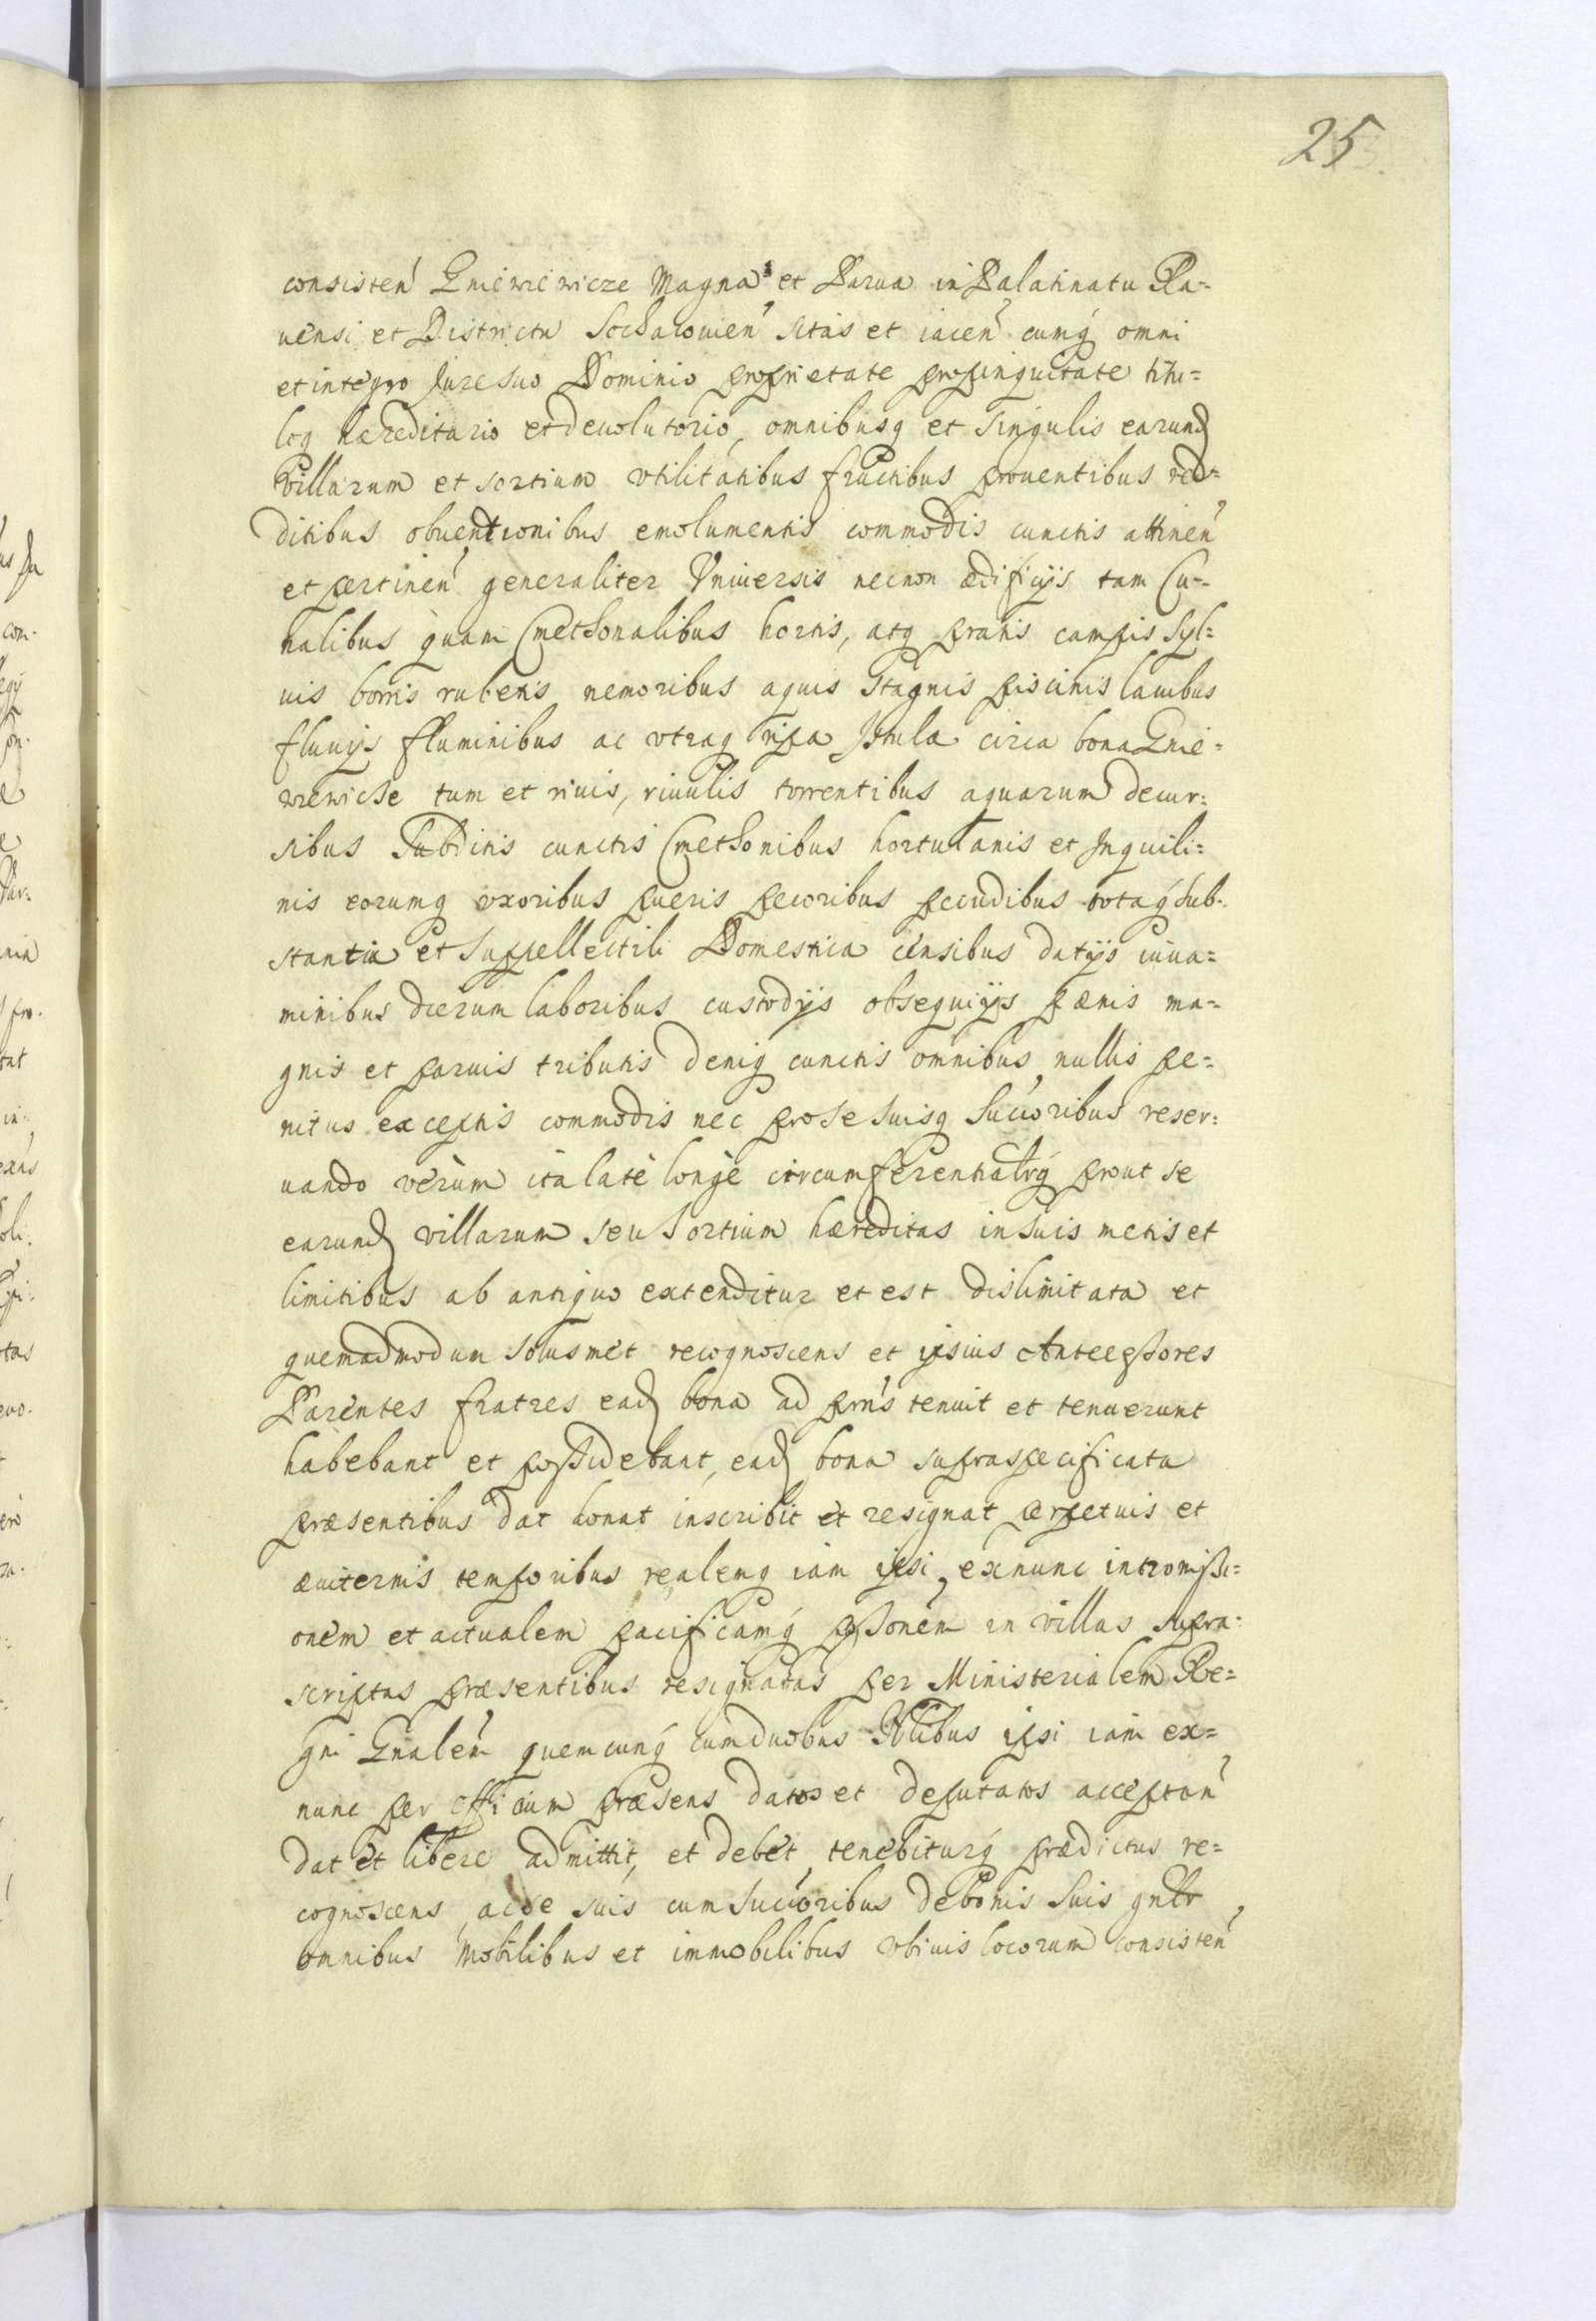 25
consisten̄ Gniewniewicze Magna et Parua in Palatinatu Ra=
uensi et Districtu Sochaczouien̄ sitas et iacen̄ cumq́ omni
et integro Iure suo Dominio proprietate propinquitate titu=
loq hæreditario et deuolutorio, omnibusq et singulis earund
Villarum et sortium vtilitatibus fructibus prouentibus red=
ditibus obuentionibus emolumentis commodis cunctis attinen̄
et pertinen̄ generaliter Vniuersis necnon ædificijs tam Cu=
rialibus quam Cmethonalibus hortis, atq pratis campis Syl=
uis borris rubetis nemoribus aquis Stagnis piscinis lacubus
fluuijs fluminibus ac vtraq ripa Istulæ circa bona Gnie=
wniewicze tum et riuis, riuulis torrentibus aquarum decur=
sibus Subditis cunctis Cmethonibus hortulanis et Inquili=
nis eorumq vxoribus pueris pecoribus pecudibus totaq́ Sub=
stantia et Suppellectili Domestica censibus datijs iuua=
minibus dierum laboribus custodijs obsequijs pænis ma=
gnis et paruis tributis deniq cunctis omnibus, nullis pe=
nitus exceptis commodis nec pro se suisq Succ̄oribus reser=
uando verùm ita latè longè circumferentialr̄q́ prout se
earund villarum seu Sortium hæreditas in suis metis et
limitibus ab antiquo extenditur et est dislimitata et
quemadmodum solusmet recognoscens et ipsius Antecessores
Parentes fratres ead bona ad prn̄s tenuit et tenuerunt
habebant et possidebant, ead bona supraspecificata
præsentibus dat donat inscribit et resignat perpetuis et
æuiternis temporibus realemq iam ipsi, exnunc intromissi=
onem et actualem pacificamq́ pssōnem in villas supra=
scriptas præsentibus resignatas per Ministerialem Re=
gni Gn̄alem quemcunq́ cum duobus Nblibus ipsi iam ex=
nunc per officium præsens datos et deputatos acceptan̄
dat et libere admittit, et debet, tenebiturq́ prædictus re=
cognoscens, ac de suis cum Succ̄oribus de bonis suis gn̄lr
omnibus Mobilibus et immobilibus vbiuis locorum consisten̄